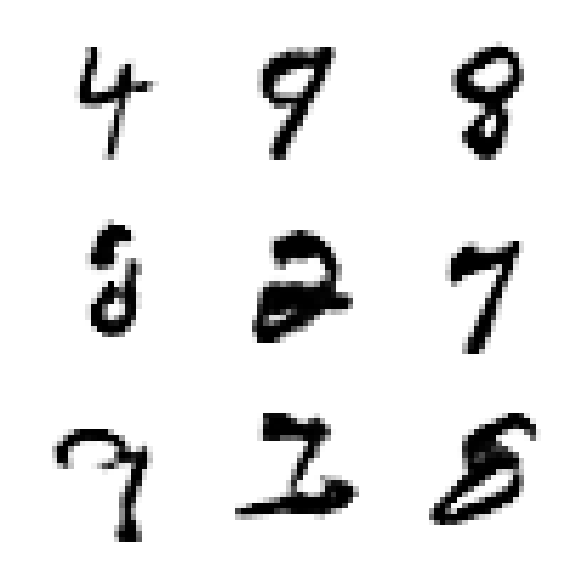 4 9 8
8 2 7
2 8